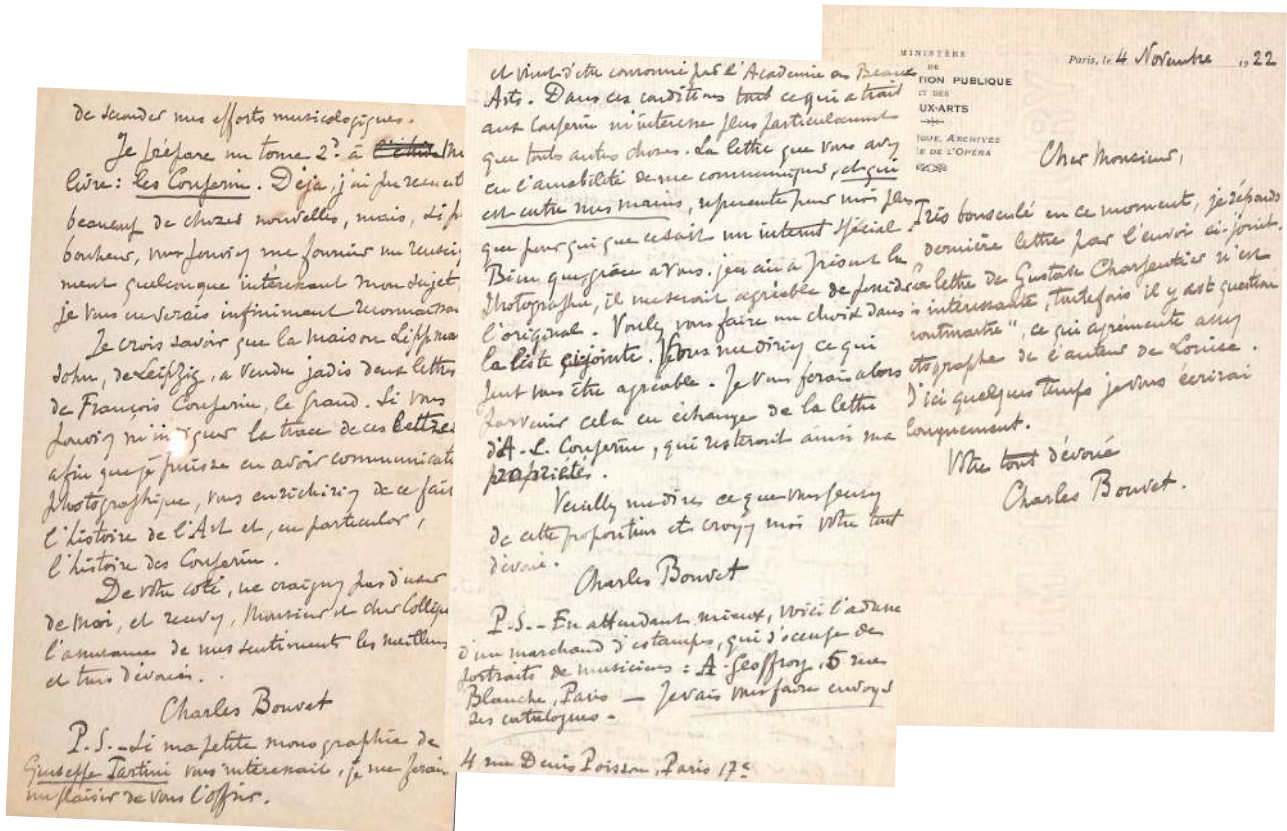 de seconder mes efforts musicologiques.
Je prépare un tome 2d à
livre : les Couperin. Déja, j'ai pu
beaucoup de choses nouvelles, mais, si p
bonheur, vous pouviez me fournir un rensei
ment quelconque intéressant mon sujet
je vous en serais infiniment reconnaissa
Je crois savoir que la maison
de Leipzig, a vendu jadis deux lettres
de François Couperin, le grand. Si vous
pouviez la trace de ces lettres
afin que je puisse en avoir communicat
photographique, vous enrichiriez de ce fait
l'histoire de l'Art et, en particulier,
l'histoire des Couperin.
De votre coté, ne craignez pas d'user
de moi, et recevez, Monsieur et cher Collègue
l'assurance de mes sentiments les meilleurs
et très dévoués.
Charles Bouvet
P.S. - Si ma petite monographie de
Giuseppe Tartini vous intéressait, je me ferais
un plaisir de vous l'offrir.
et vient d'être couronné par l'Académie des Beaux
Arts. Dans ces conditions tout ce qui a trait
aux Couperin m'intéresse plus particulièrement
que toute autre chose. La lettre que vous avez
eu l'amabilité de me communiquer, et qui
est entre mes mains, représente pour moi plus
que pour qui que ce soit un intérêt spécial.
Bien que, grâce à vous, j'en ai à présent la
photographie, il me serait agréable de posséder
l'original. Voulez vous faire un choix dans
la liste ci-jointe. Vous me diriez ce qui
peut vous être agréable. Je vous ferais alors
parvenir cela en échange de la lettre
d'A-L. Couperin, qui resterait ainsi ma
propriété.
Veuillez me dire ce que vous pensez
de cette proposition et croyez moi votre tout
dévoué.
Charles Bouvet
P.S. - En attendant mieux, voici l'adresse
d'un marchand d'estampes, qui s'occupe de
portraits de musiciens : A. Geoffroy, 5 rue
Blanche, Paris — Je vais vous faire envoyer
ses catalogues -
4 rue Denis Poisson, Paris 17e
MINISTÈRE
DE
TION PUBLIQUE
ET DES
UX-ARTS
QUE, ARCHIVES
E DE L'OPÉRA
Paris, le 4 Novembre 1922
Cher Monsieur,
Très bousculé en ce moment, je réponds
dernière lettre par l'envoi ci-joint.
la lettre de Gustave Charpentier n'est
s intéressante, toutefois il y est question
ontmartre", ce qui agrémente assez
tographe de l'auteur de Louise.
D'ici quelques temps je vous écrirai
longuement.
Votre tout dévoué
Charles Bouvet.